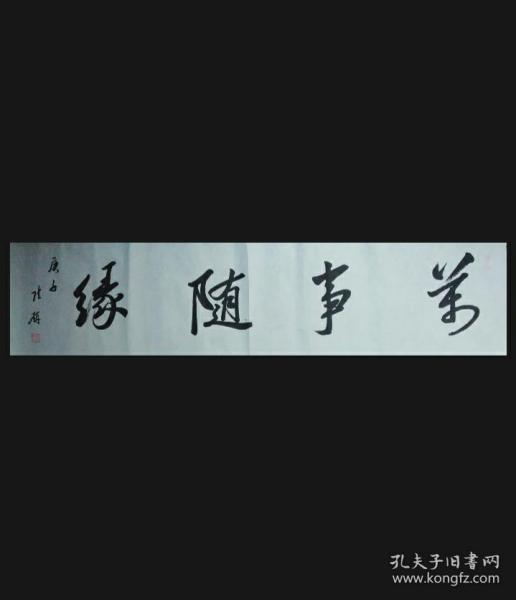 萬事随緣
庚子
孔夫子旧書网
www.kongfz.com